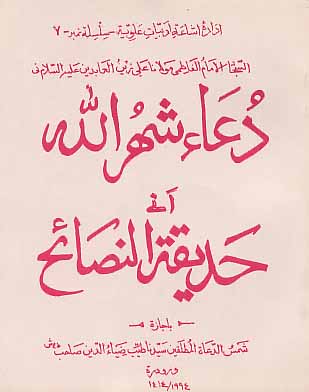 ادارۂ اشاعة ادبیات علویة - سلسلة نمبر - ٧
التجاء الامام الفاطمي مولانا علي زين العابدين عليه السلام نی
دُعَاء شهر الله
انے
حديقة النصائح
باجازة
شمس الدعاة المطلقين سيدنا طيب ضياء الدين صاحب
وڈودرة
١٤١٤/١٩٩٤